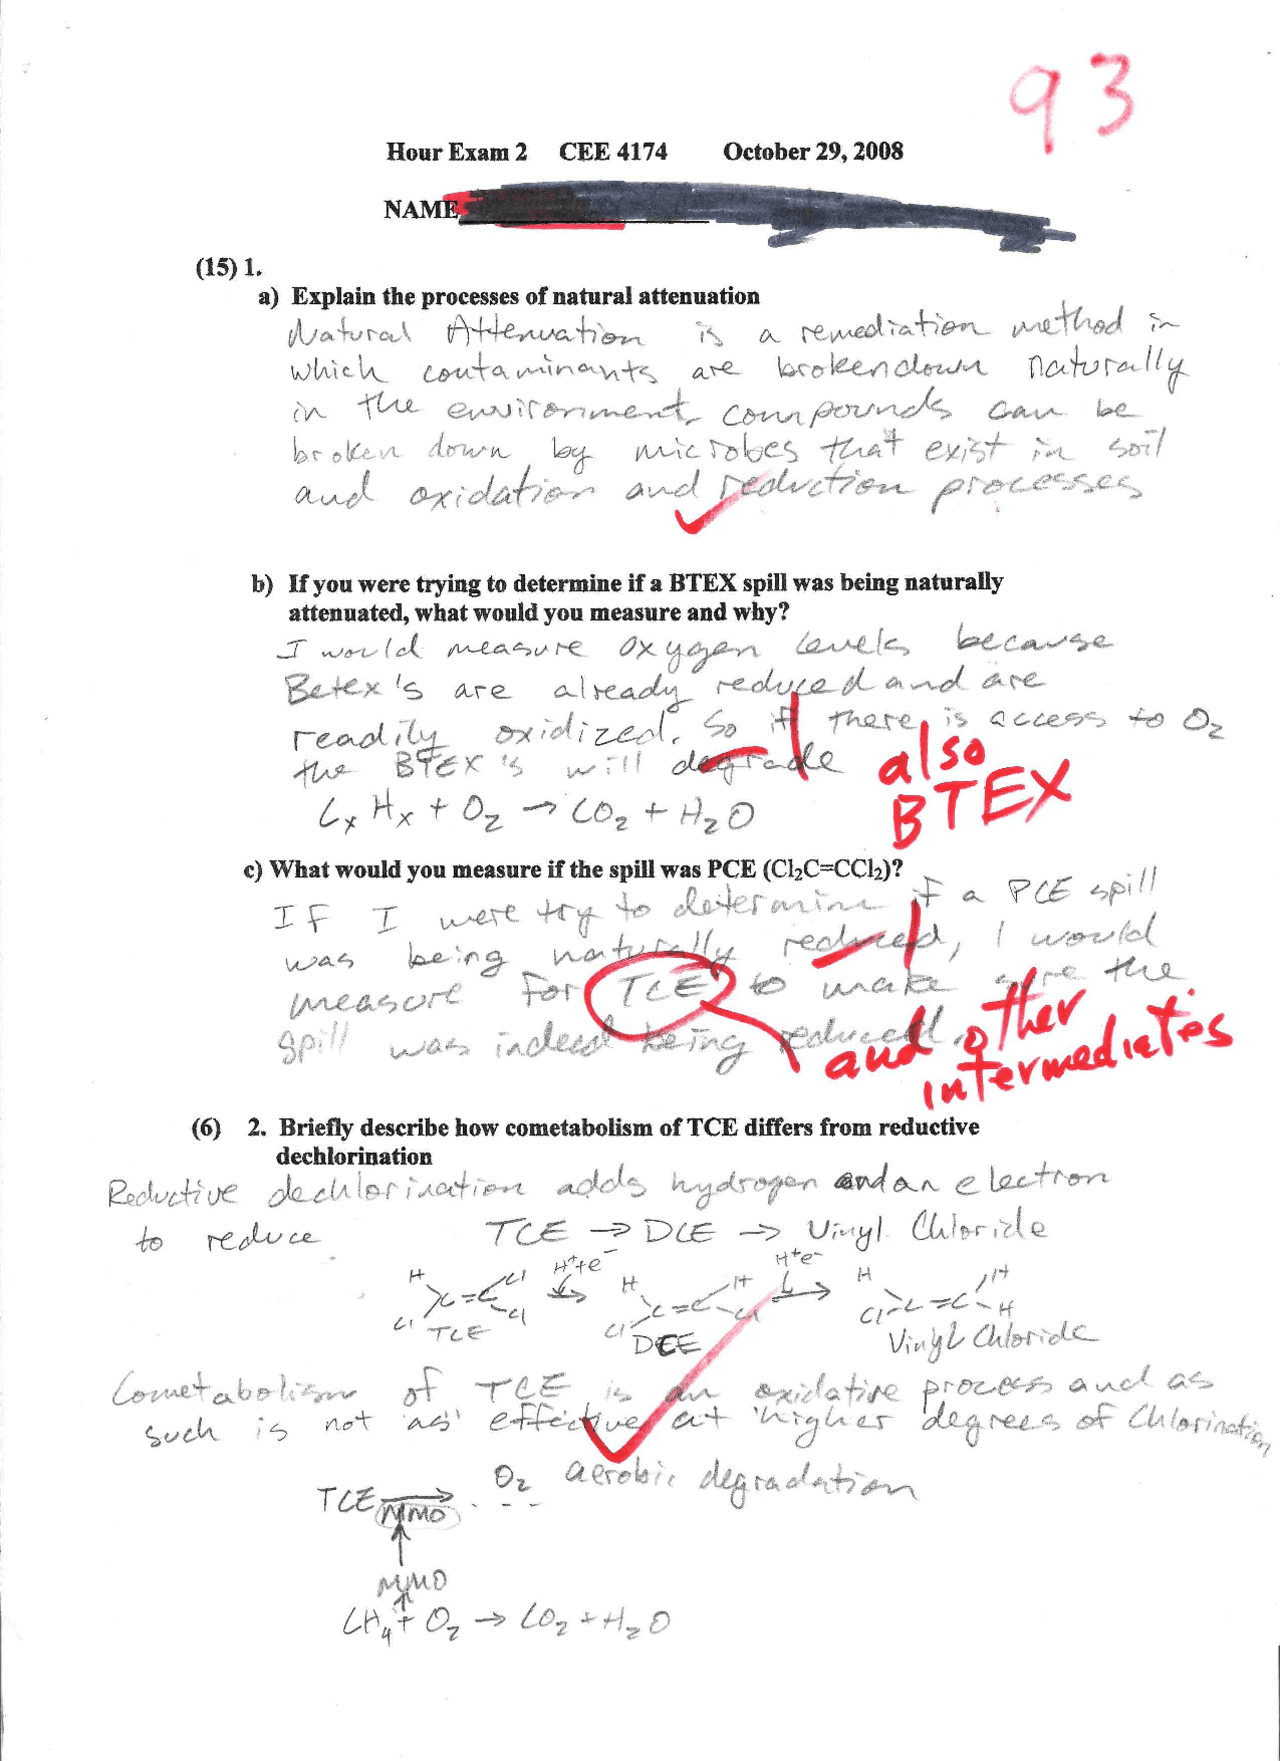 93
Hour Exam 2 CEE 4174 October 29, 2008
NAME
(15) 1.
a) Explain the processes of natural attenuation
Natural Attenuation is a remediation method in
which contaminants are brokendown naturally
in the environment, compounds can be
broken down by microbes that exist in soil
and oxidation and reduction processes
b) If you were trying to determine if a BTEX spill was being naturally
attenuated, what would you measure and why?
I would measure oxygen levels because
Betex's are already reduced and are
readily oxidized. So if there is access to O₂
the BTEX's will degrade
also
BTEX
CₓHₓ + O₂ → CO₂ + H₂O
c) What would you measure if the spill was PCE (Cl₂C=CCl₂)?
IF I were try to determine if a PCE spill
was being naturally reduced, I would
measure for TCE to make sure the
spill was indeed being reduced.
and other
intermediates
(6) 2. Briefly describe how cometabolism of TCE differs from reductive
dechlorination
Reductive dechlorination adds hydrogen and an electron
to reduce TCE → DCE → Vinyl Chloride
H Cl H⁺+e⁻ H H H⁺e⁻ H H
C=C C=C C=C
Cl Cl Cl Cl Cl H
TCE DCE Vinyl Chloride
Cometabolism of TCE is an oxidative process and as
such is not as effective at higher degrees of Chlorination
TCE → O₂ aerobic degradation
MMO
MMO
CH₄ + O₂ → CO₂ + H₂O